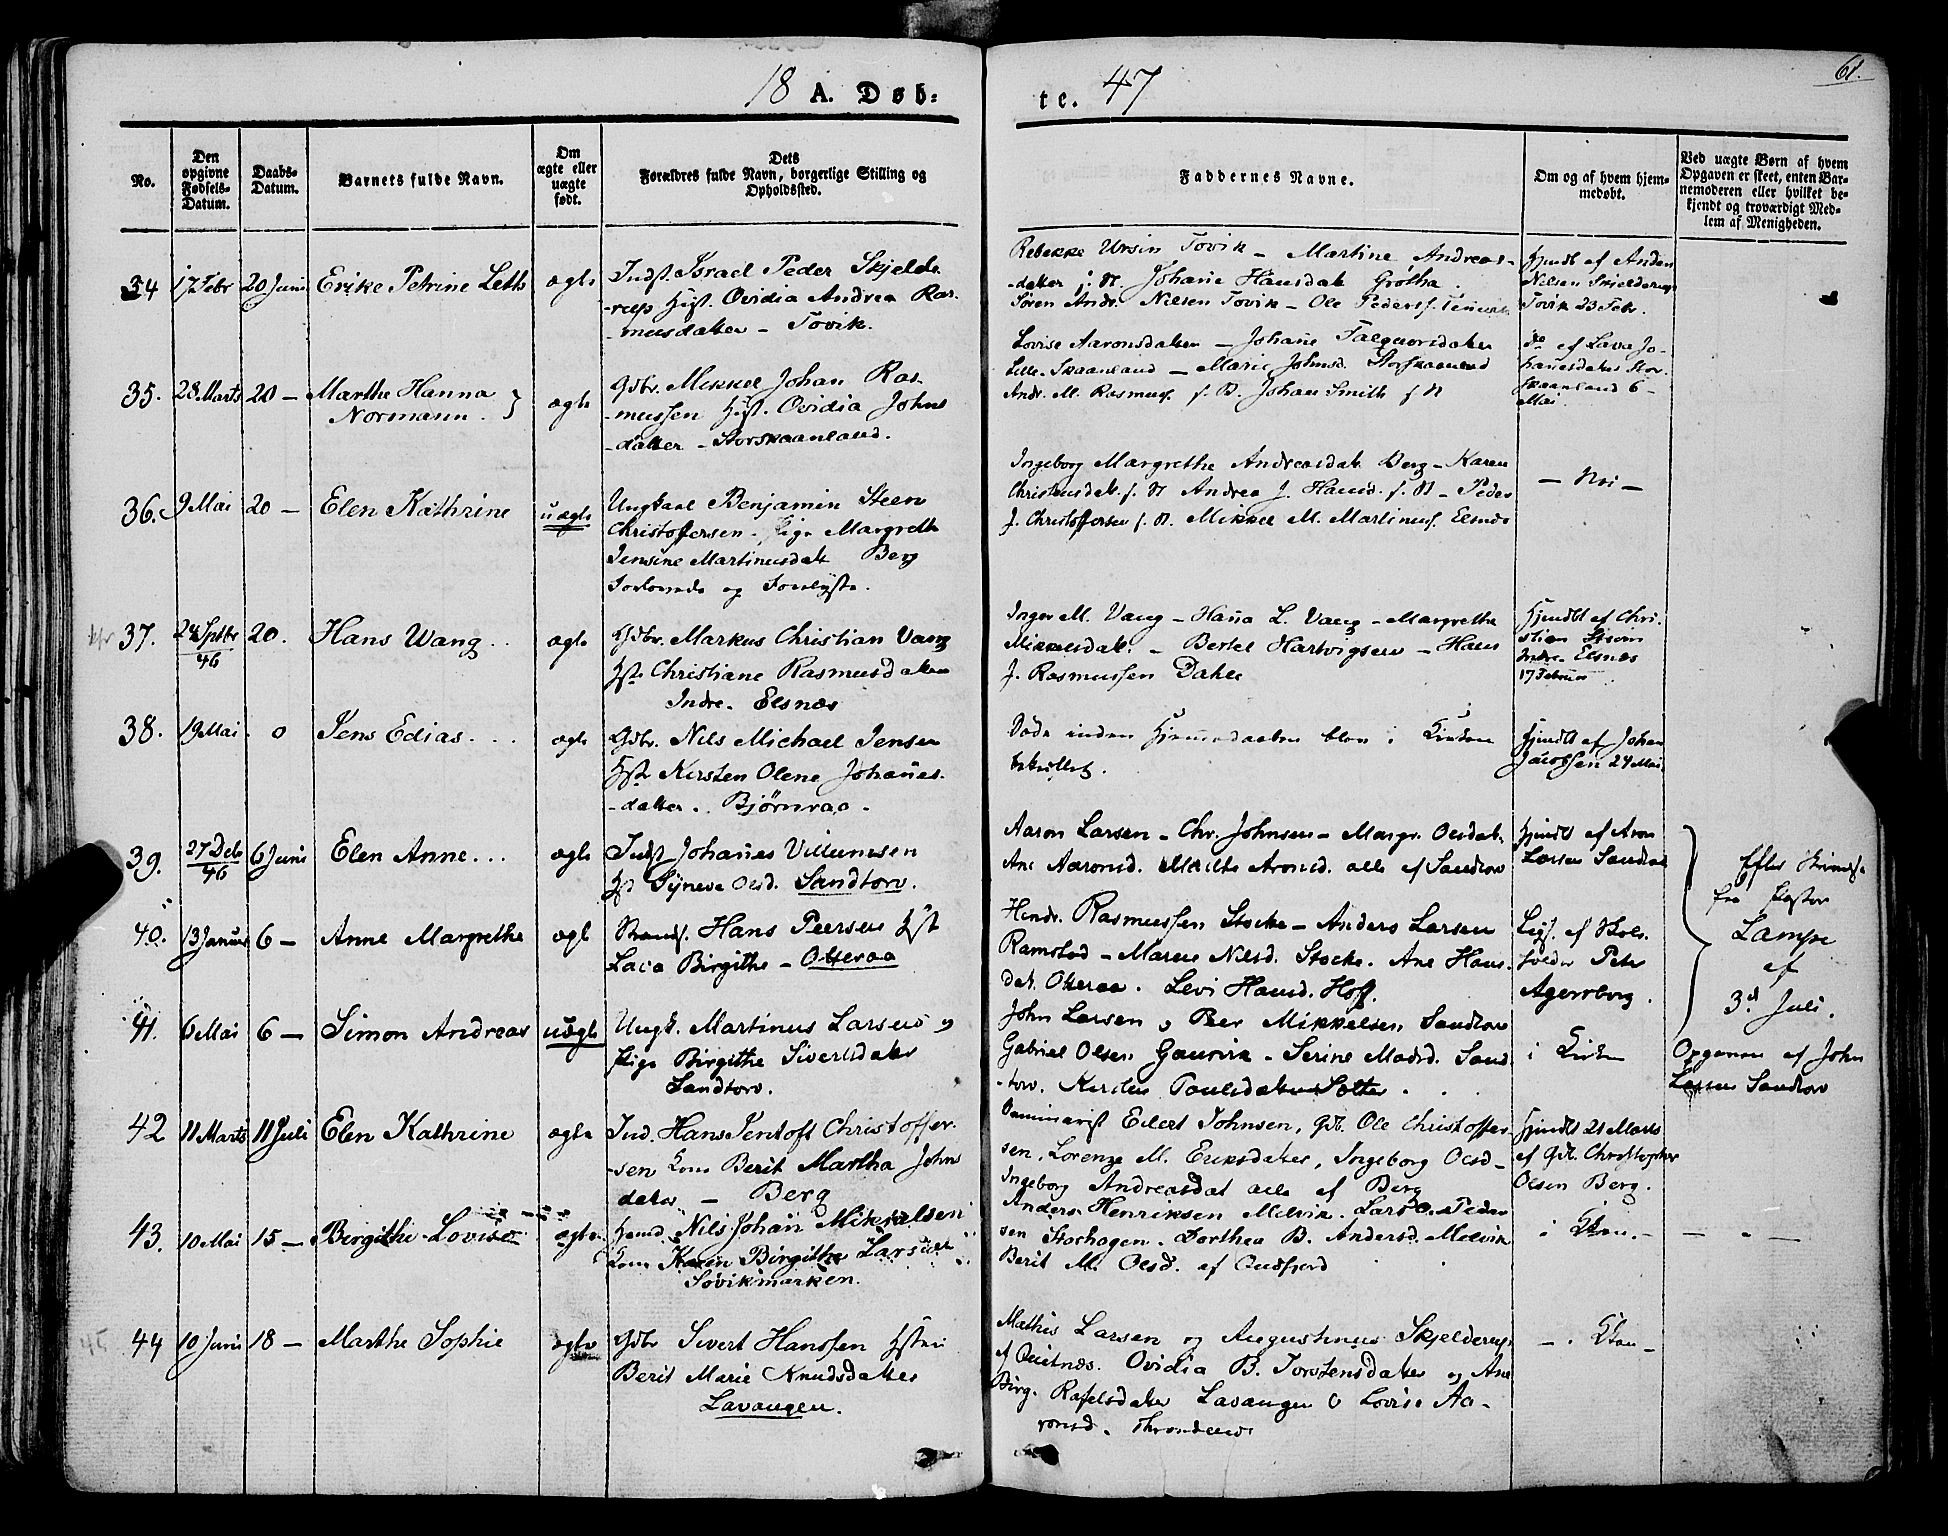 18 A. Døb=
te. 47
61.
No.
Den opgivne Fødsels-Datum.
Daabs-Datum.
Barnets fulde Navn.
Om ægte eller uægte født.
Dets Forældres fulde Navn, borgerlige Stilling og Opholdssted.
Faddernes Navne.
Om og af hvem hjemmedøbt.
Ved uægte Børn af hvem Opgaven er skeet, enten Barnemoderen eller hvilket bekjendt og troværdigt Medlem af Menigheden.
34 17 Febr 20 Juni Erike Petrine Leth ægte
Indst. Israel Peder Skjelde-
-rup Hust. Ovidia Andrea Ras-
musdatter - Tovik.
Rebekke Ursin Tovik - Martine Andreas-
-datter Johane Hansdat Grøtha
Søren Andr. Nilsen Tovik - Ole Peders.
Hjemdt af Anders
Nilsen Skjelderup
Tovik 23 Febr.
35. 28 Marts 20 - Marthe Hanna
Normann. ægte
Gdbr. Mikkel Johan Ras-
-mussen Hust. Ovidia Johns
-datter - Storskaanland.
Lovise Aaronsdatter - Johane
Lille-Skaanland - Marie Johnsd. Storskaanland
Andr. M. Rasmus. Johan Smith
do af Lava Jo-
hanesdatter Stor-
skaanland 6 -
Mai.
36. 9 Mai 20 - Elen Kathrine uægte
Ungkarl Benjamin Steen
Christoffersen. Pige Margrethe
Jensine Martinusdat Berg
Forlovede og
Ingeborg Margrethe Andreasdat. Berg - Karen
Christensdat. Andrea J. Hansd. - Peder
J. Christoffersen Mikkel M. Martinus. Elsnæs
- Nei -
37. 24 Sptbr 46 20. Hans Wang .. ægte
Gdbr. Markus Christian Vang
Hst. Christiane Rasmusdatter
Indre. Elsnæs
Inger M. Vang - Hana L. Vang - Margrethe
Mikkelsdat. - Bertel Hartvigsen - Hans
J. Rasmussen Dahle
Hjemdt af Chri-
stian Steen
Indre. Elsnæs
17 Februar
38. 19 Mai 0 Jens Edias. ... ægte
Gdbr. Nils Michael Jensen
Hst. Kirsten Olene Johanes-
-datter. Bjørnraa.
Døde inden Hjemmedaaben blev i Kirken
Hjemdt af Johan
Jacobsen 24 Mai
39. 27 Decb 46 6 Juni Elen Anne... ægte
Indst Johanes Villumsen
Hst Synneve Olsd. Sandtorv.
Aaron Larsen - Chr. Johnsen - Margr. Olsdat.
Ane Aaronsd. Aronsd. alle af Sandtorv
Hjemdt af Aron
Larsen Sandtorv
Efter
fra Pastor
Lampe
af
3d Juli.
40. 13 Januar 6 - Anne Margrethe ægt
Hans Peersen Hst
Lava Birgithe - Otteraa
Rasmussen Stocke - Anders Larsen
Ramstad - Maren Nilsd. Stocke. Ane Hans-
dat. Otteraa. Levi Hansd. Hoff.
Ligs. af Skole-
holder Peter
Agersborg.
41. 6 Mai 6 - Simon Andreas uægte
Ungk. Martinus Larsen og
Pige Birgithe Sivertsdatter
Sandtorv.
John Larsen, Peer Mikkelsen Sandtorv
Gabriel Olsen Gausvik - Serine Madsd. Sand-
-torv. Kirsten Poulsdatter
i Kirken
Opgaven af John
Larsen Sandtorv
42 11 Marts 11 Juli Elen Kathrine ægte
Ind. Hans Jentoft Christoffer-
-sen Kone Berit Martha Johns
datter - Berg
Seminarist Eilert Johnsen, Gdb. Ole Christoffer-
sen, Lorenze M. Eriksdatter, Ingeborg Olsd -
Ingeborg Andreasdat alle af Berg
Hjemdt 21 Marts
af Gdb. Christopher
Olsen Berg.
43. 10 Mai 15 - Birgithe Lovise ægte
Nils Johan Mikkelsen
Kone Karen Birgithe Larsdatter
Søvikmarken.
Anders Henriksen Melvik. Lars O. Peder
sen Storhagen. Dorthea B. Andersd. Melvik
Berit M. Olsd. af Qudfjord
i Kirken. -
- " -
44 10 Juni 18 - Marthe Sophie ægte
Gdbr Sivert Hanssen Hstru
Berit Marie Knudsdatter
Lavangen.
Mathis Larsen og Augustinus Skjelderup
af Qvitnæs. Ovidia B. Torstensdatter og Ane
Birg. Rafelsdatter Lavangen & Lovise Aa-
ronsd.
- . Kirken -
45